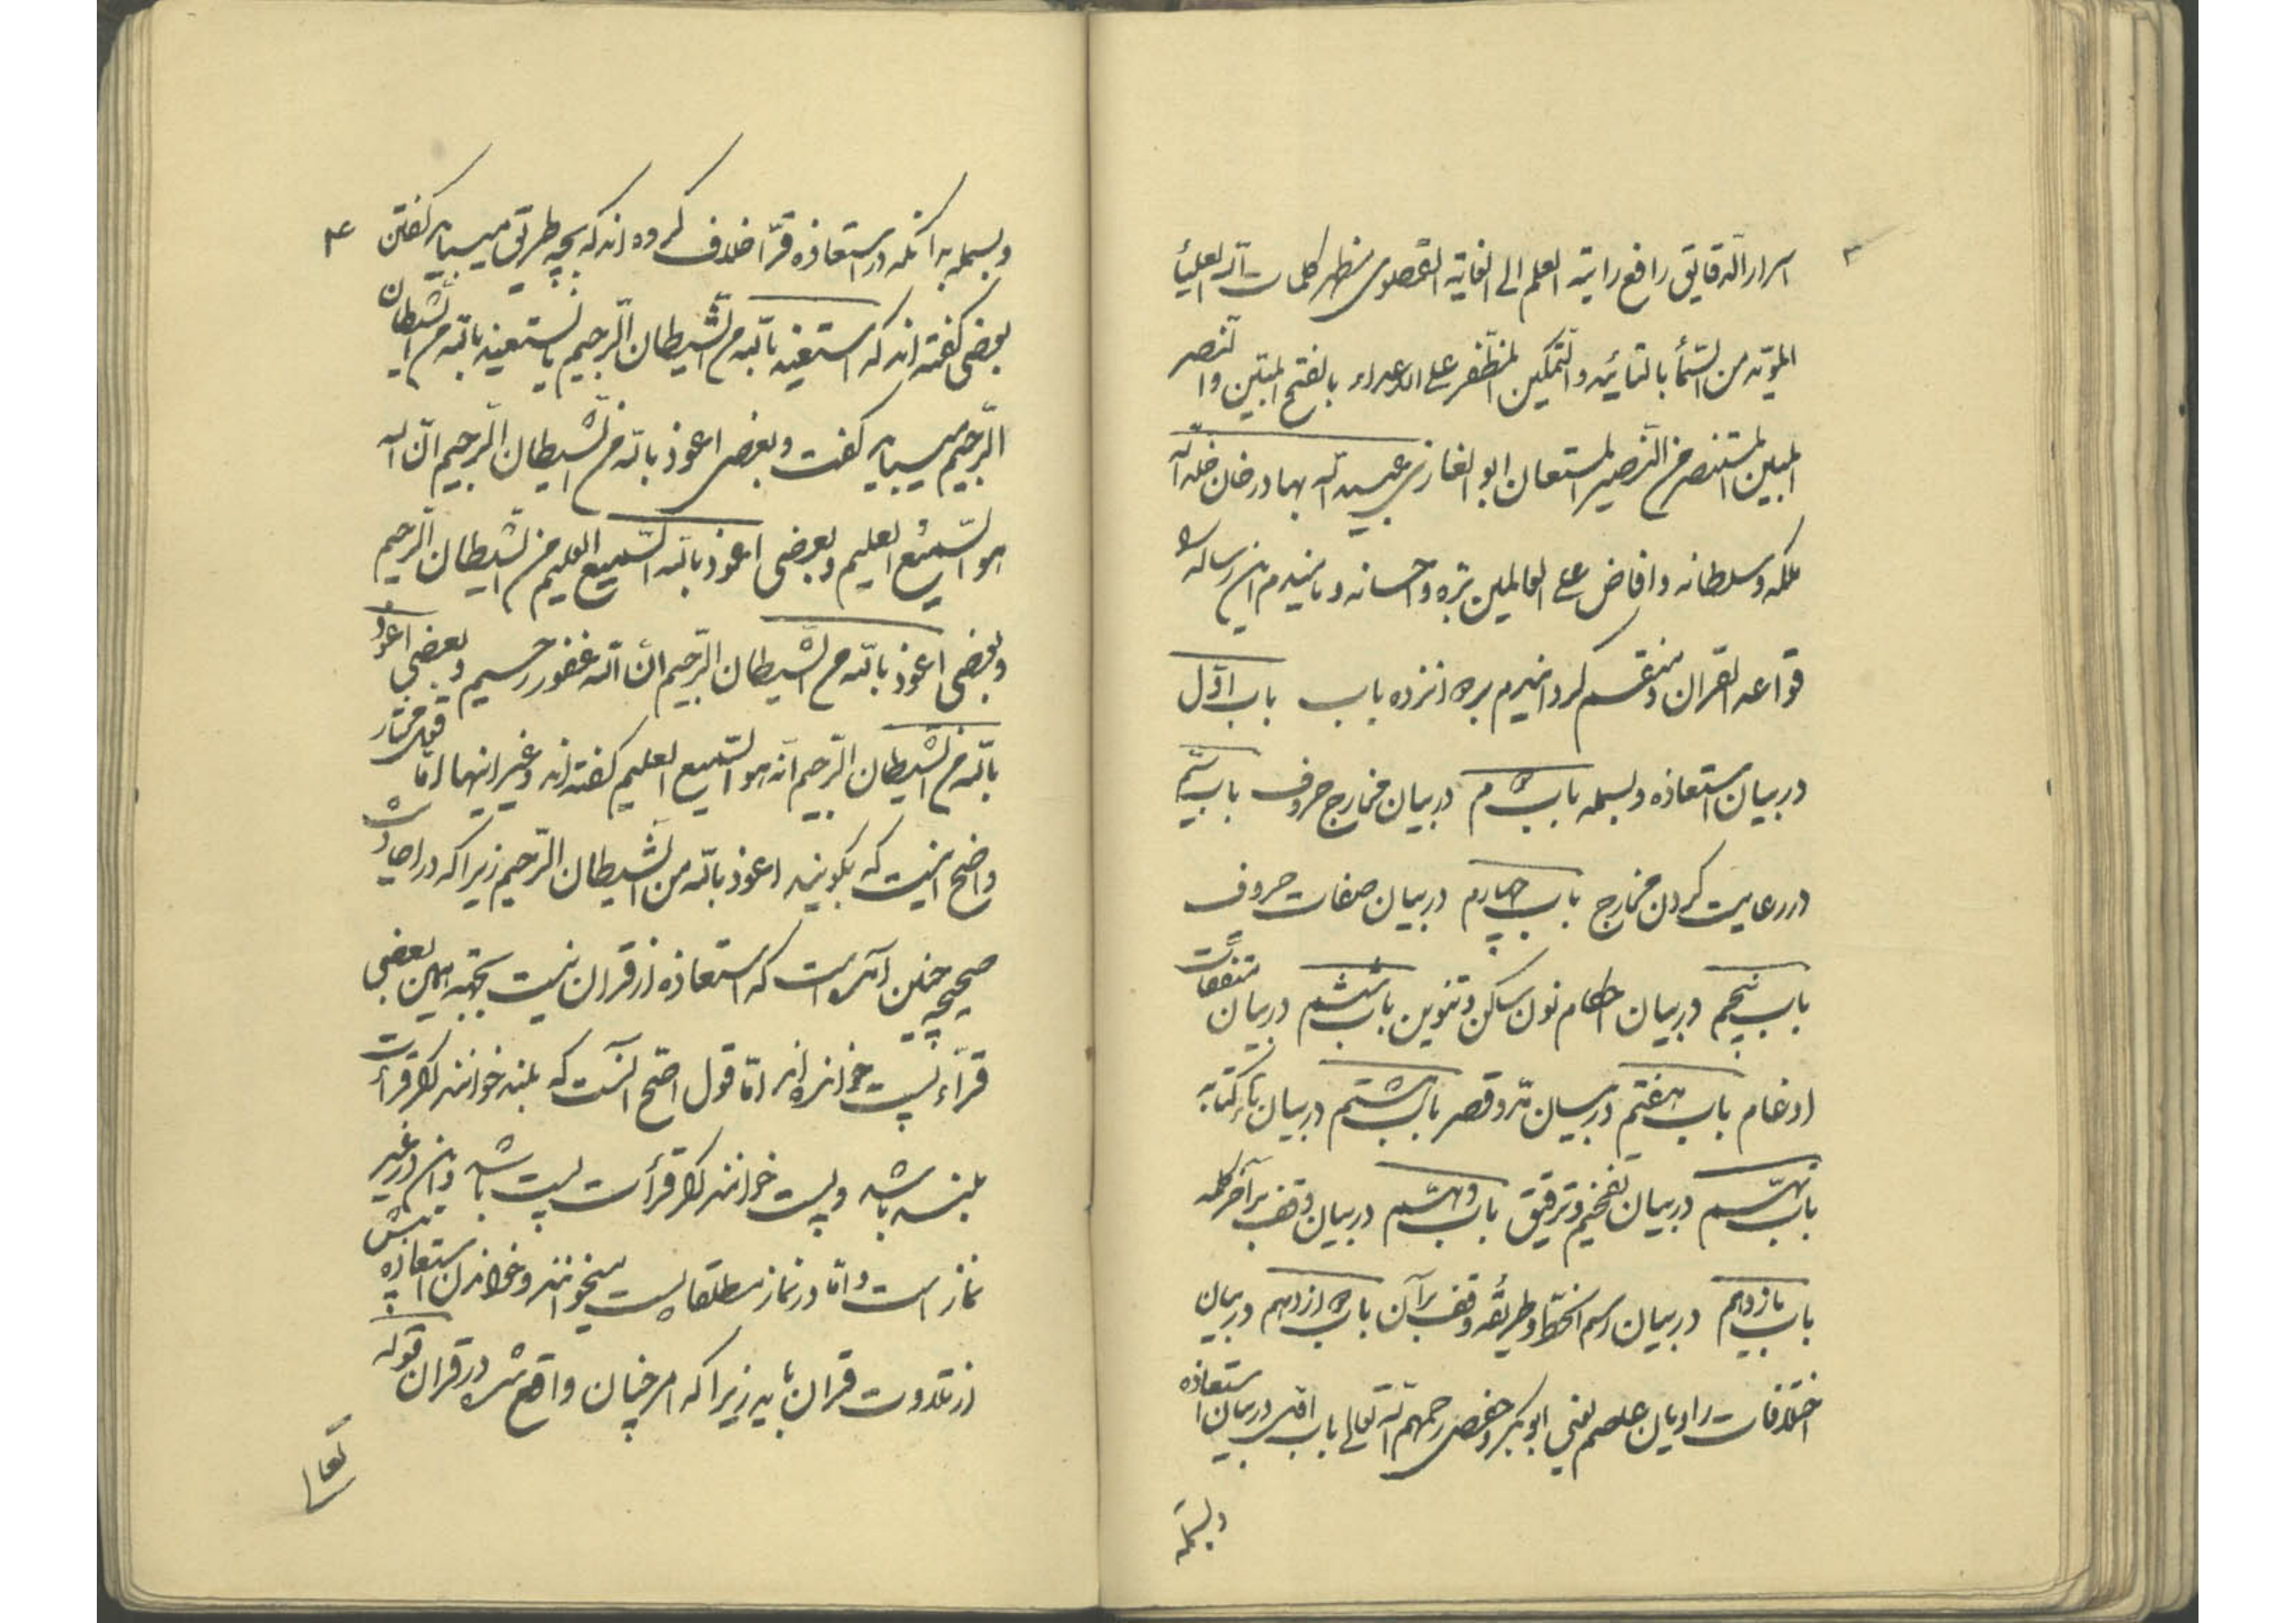 ۳
اسرار الدقایق رافع رایة العلم الی الغایة القصوی مظهر کلمات الله العلیا
المؤید من السماء بالتأئید والتمکین المظفر علی الاعداء بالفتح المبین والنصر
المبین المستنصر من النصیر المستعان ابو الغازی عبید الله بهادر خان خلد الله
ملکه وسلطانه وافاض علی العالمین بره واحسانه و نامیدم این رساله را
قواعد القران و منقسم گردانیدم بدوانزده باب باب اول
در بیان استعاذه وبسمله باب دوم در بیان مخارج حروف باب سیم
در رعایت کردن مخارج باب چهارم در بیان صفات حروف
باب پنجم در بیان احکام نون ساکن وتنوین باب ششم در بیان متفقات
ادغام باب هفتم در بیان مد وقصر باب هشتم در بیان هاء کنایه
باب نهم در بیان تفخیم وترقیق باب دهم در بیان وقف بر آخر کلمه
باب یازدهم در بیان رسم الخط وطریقه وقف بر آن باب دوازدهم در بیان
اختلافات راویان عاصم یعنی ابو بکر وحفص رحمهم الله تعالی باب اول در بیان استعاذه
وبسمله
۴
وبسمله بدانکه در استعاذه قرّا خلاف کرده اند که بچه طریق میباید گفتن
بعضی گفته اند که استعیذ بالله من الشیطان الرجیم یا نستعیذ بالله من الشیطان
الرجیم میباید گفت وبعضی اعوذ بالله من الشیطان الرجیم ان الله
هو السمیع العلیم وبعضی اعوذ بالله السمیع العلیم من الشیطان الرجیم
وبعضی اعوذ بالله من الشیطان الرجیم ان الله غفور رحیم وبعضی اعوذ
بالله من الشیطان الرجیم انه هو السمیع العلیم گفته اند وغیر اینها اما قول مختار
واضح اینست که بگویند اعوذ بالله من الشیطان الرجیم زیرا که در احادیث
صحیحه چنین آمده است که استعاذه از قران نیست بجهة همین بعضی
قرّاء پست خوانده اند اما قول اصح آنست که بلند خوانند اگر قرأت
بلند باشد وپست خوانند اگر قرأت پست باشد واین در غیر
نماز است واما در نماز مطلقا پست میخوانند وخواندن استعاذه پیش
از تلاوت قران باید زیرا که امر چنان واقع شده در قران قوله
تعالی